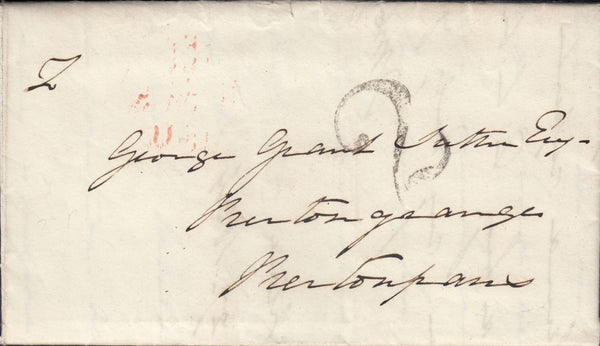 2
George Grant Suttie Esq
Prestongrange
Prestonpans